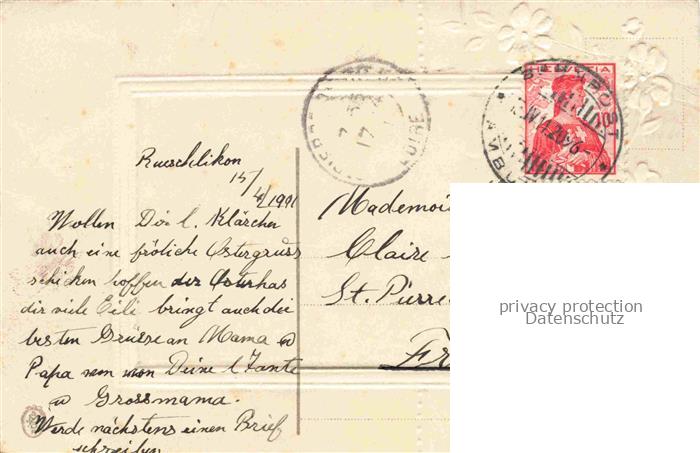 Rueschlikon
15/4/1911
Wollen Dir l. Klärchen
auch eine fröliche Ostergruss
schicken hoffen der Osterhas
dir viele Eili bringt auch die
besten Grüsse an Mama u
Papa von Deine l Tante
u Grossmama.
Werde nächstens einen Brief
schreiben
Mademoi
Claire
St. Pierre
Fr
HELVETIA
BAHNPOST
AMBUL
LOIRE
17
privacy protection
Datenschutz